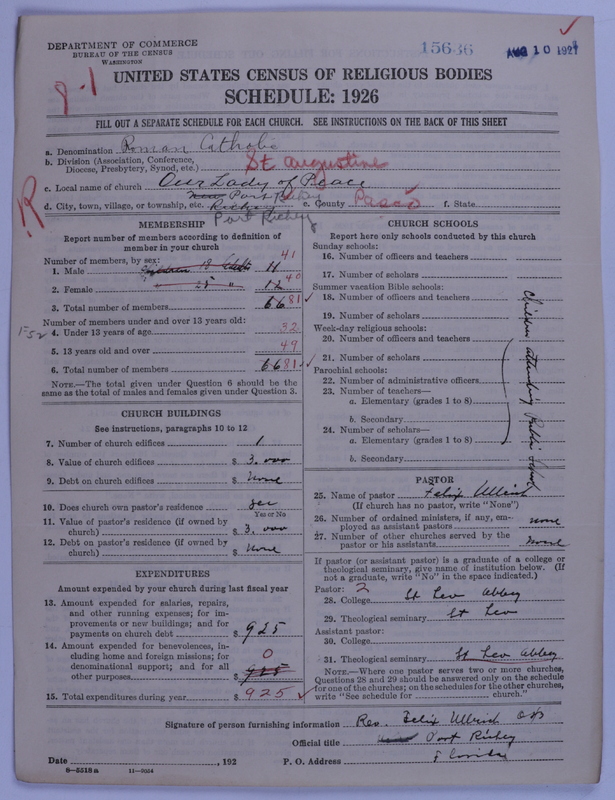 DEPARTMENT OF COMMERCE
BUREAU OF THE CENSUS
WASHINGTON
15636
AUG 10 1927
8-1
UNITED STATES CENSUS OF RELIGIOUS BODIES
SCHEDULE: 1926
FILL OUT A SEPARATE SCHEDULE FOR EACH CHURCH. SEE INSTRUCTIONS ON THE BACK OF THIS SHEET
R
a. Denomination Roman Catholic
b. Division (Association, Conference,
Diocese, Presbytery, Synod, etc.) St Augustine
c. Local name of church Our Lady of Peace
d. City, town, village, or township, etc. Port Richey e. County Pasco f. State
Port Richey
MEMBERSHIP
Report number of members according to definition of
member in your church
Number of members, by sex: 41
1. Male 11
2. Female 12 40
3. Total number of members 66 81
Number of members under and over 13 years old:
4. Under 13 years of age 32
5. 13 years old and over 49
6. Total number of members 66 81
NOTE.—The total given under Question 6 should be the
same as the total of males and females given under Question 3.
CHURCH BUILDINGS
See instructions, paragraphs 10 to 12
7. Number of church edifices 1
8. Value of church edifices $ 3.000
9. Debt on church edifices $ None
10. Does church own pastor's residence yes
Yes or No
11. Value of pastor's residence (if owned by
church) $ 3.000
12. Debt on pastor's residence (if owned by
church) $ None
EXPENDITURES
Amount expended by your church during last fiscal year
13. Amount expended for salaries, repairs,
and other running expenses; for im-
provements or new buildings; and for
payments on church debt $ 925
14. Amount expended for benevolences, in-
cluding home and foreign missions; for
denominational support; and for all
other purposes $ 925 0
15. Total expenditures during year $ 925
CHURCH SCHOOLS
Report here only schools conducted by this church
Sunday schools:
16. Number of officers and teachers
17. Number of scholars
Summer vacation Bible schools:
18. Number of officers and teachers
19. Number of scholars
Week-day religious schools:
20. Number of officers and teachers
21. Number of scholars
Parochial schools:
22. Number of administrative officers
23. Number of teachers—
a. Elementary (grades 1 to 8)
b. Secondary
24. Number of scholars—
a. Elementary (grades 1 to 8)
b. Secondary
Children attending Public School
PASTOR
25. Name of pastor Felix Ullrich
(If church has no pastor, write "None")
26. Number of ordained ministers, if any, em-
ployed as assistant pastors none
27. Number of other churches served by the
pastor or his assistants None
If pastor (or assistant pastor) is a graduate of a college or
theological seminary, give name of institution below. (If
not a graduate, write "No" in the space indicated.)
Pastor: 2
28. College St Leo Abbey
29. Theological seminary St Leo
Assistant pastor:
30. College
31. Theological seminary St Leo Abbey
NOTE.—Where one pastor serves two or more churches,
Questions 28 and 29 should be answered only on the schedule
for one of the churches; on the schedules for the other churches,
write "See schedule for church."
Signature of person furnishing information Rev. Felix Ullrich OSB
Official title Port Richey
Date , 192 P. O. Address Florida
8—5518 a 11—9054